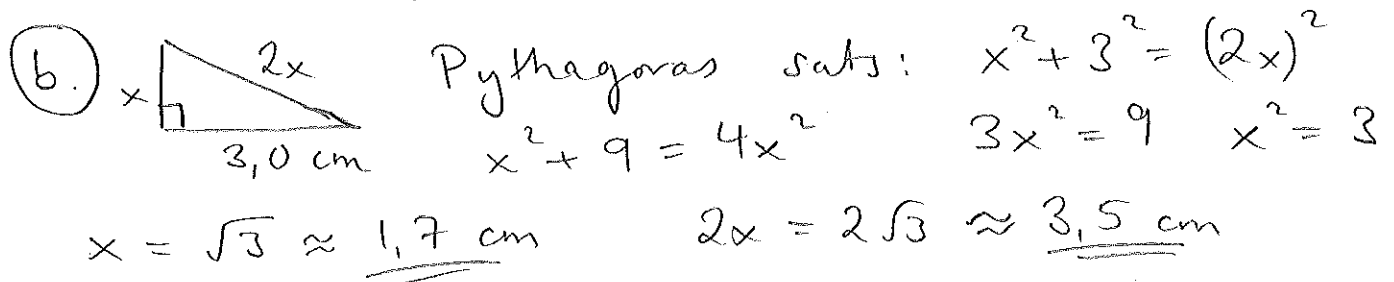 b. x 2x 3,0 cm Pythagoras sats: x² + 3² = (2x)²
x² + 9 = 4x² 3x² = 9 x² = 3
x = √3 ≈ 1,7 cm 2x = 2√3 ≈ 3,5 cm